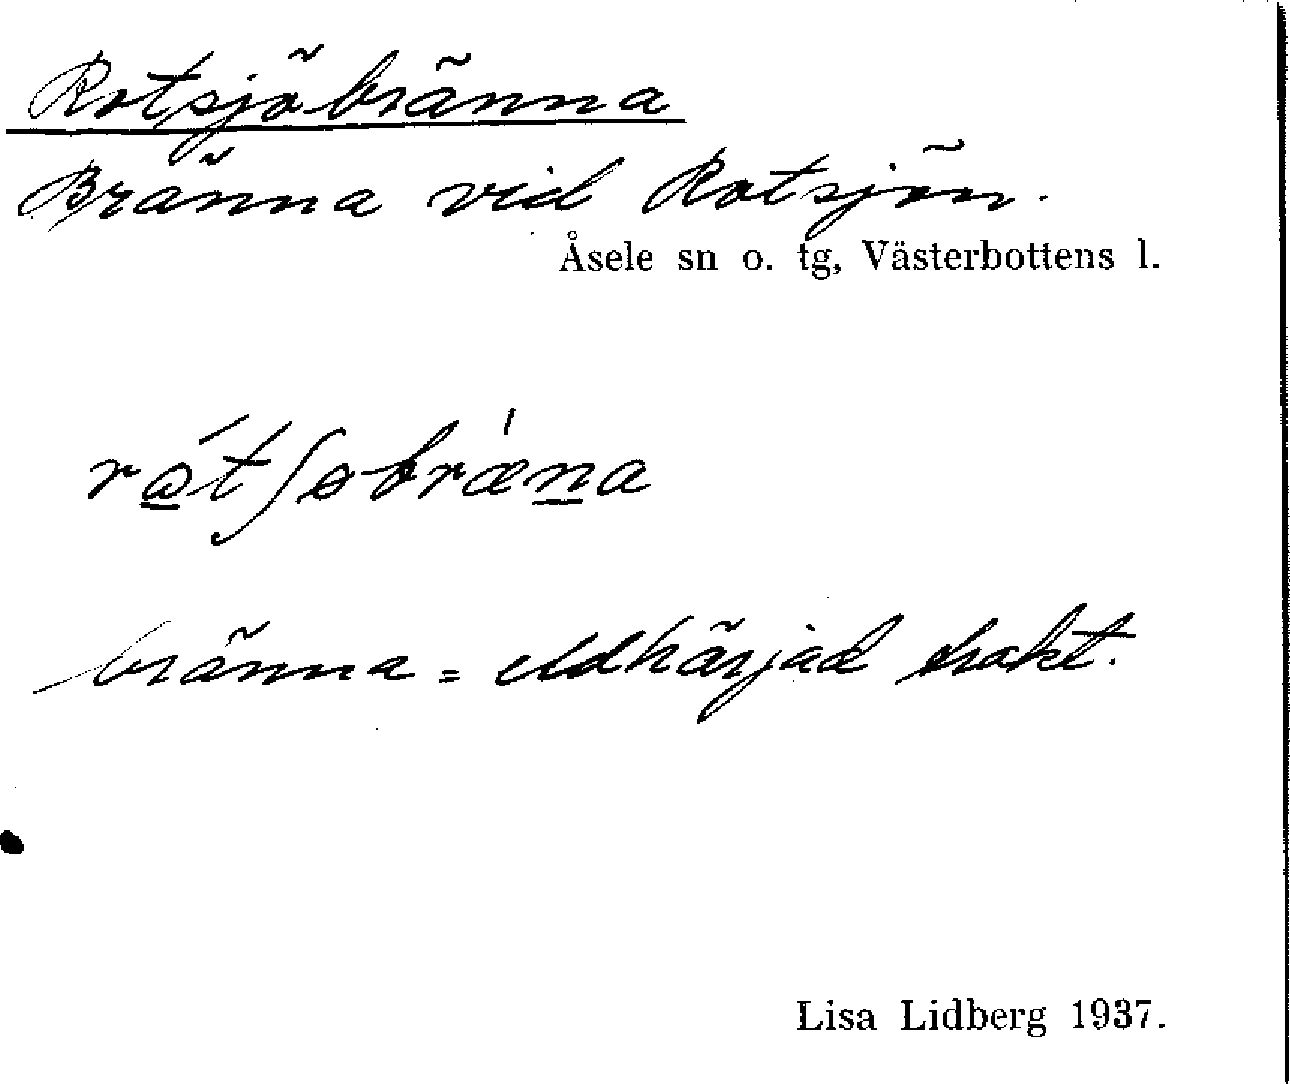 Rotsjöbränna
Bränna vid Rotsjön.
Åsele sn o. tg, Västerbottens l.
bränna = eldhärjad trakt.
Lisa Lidberg 1937.